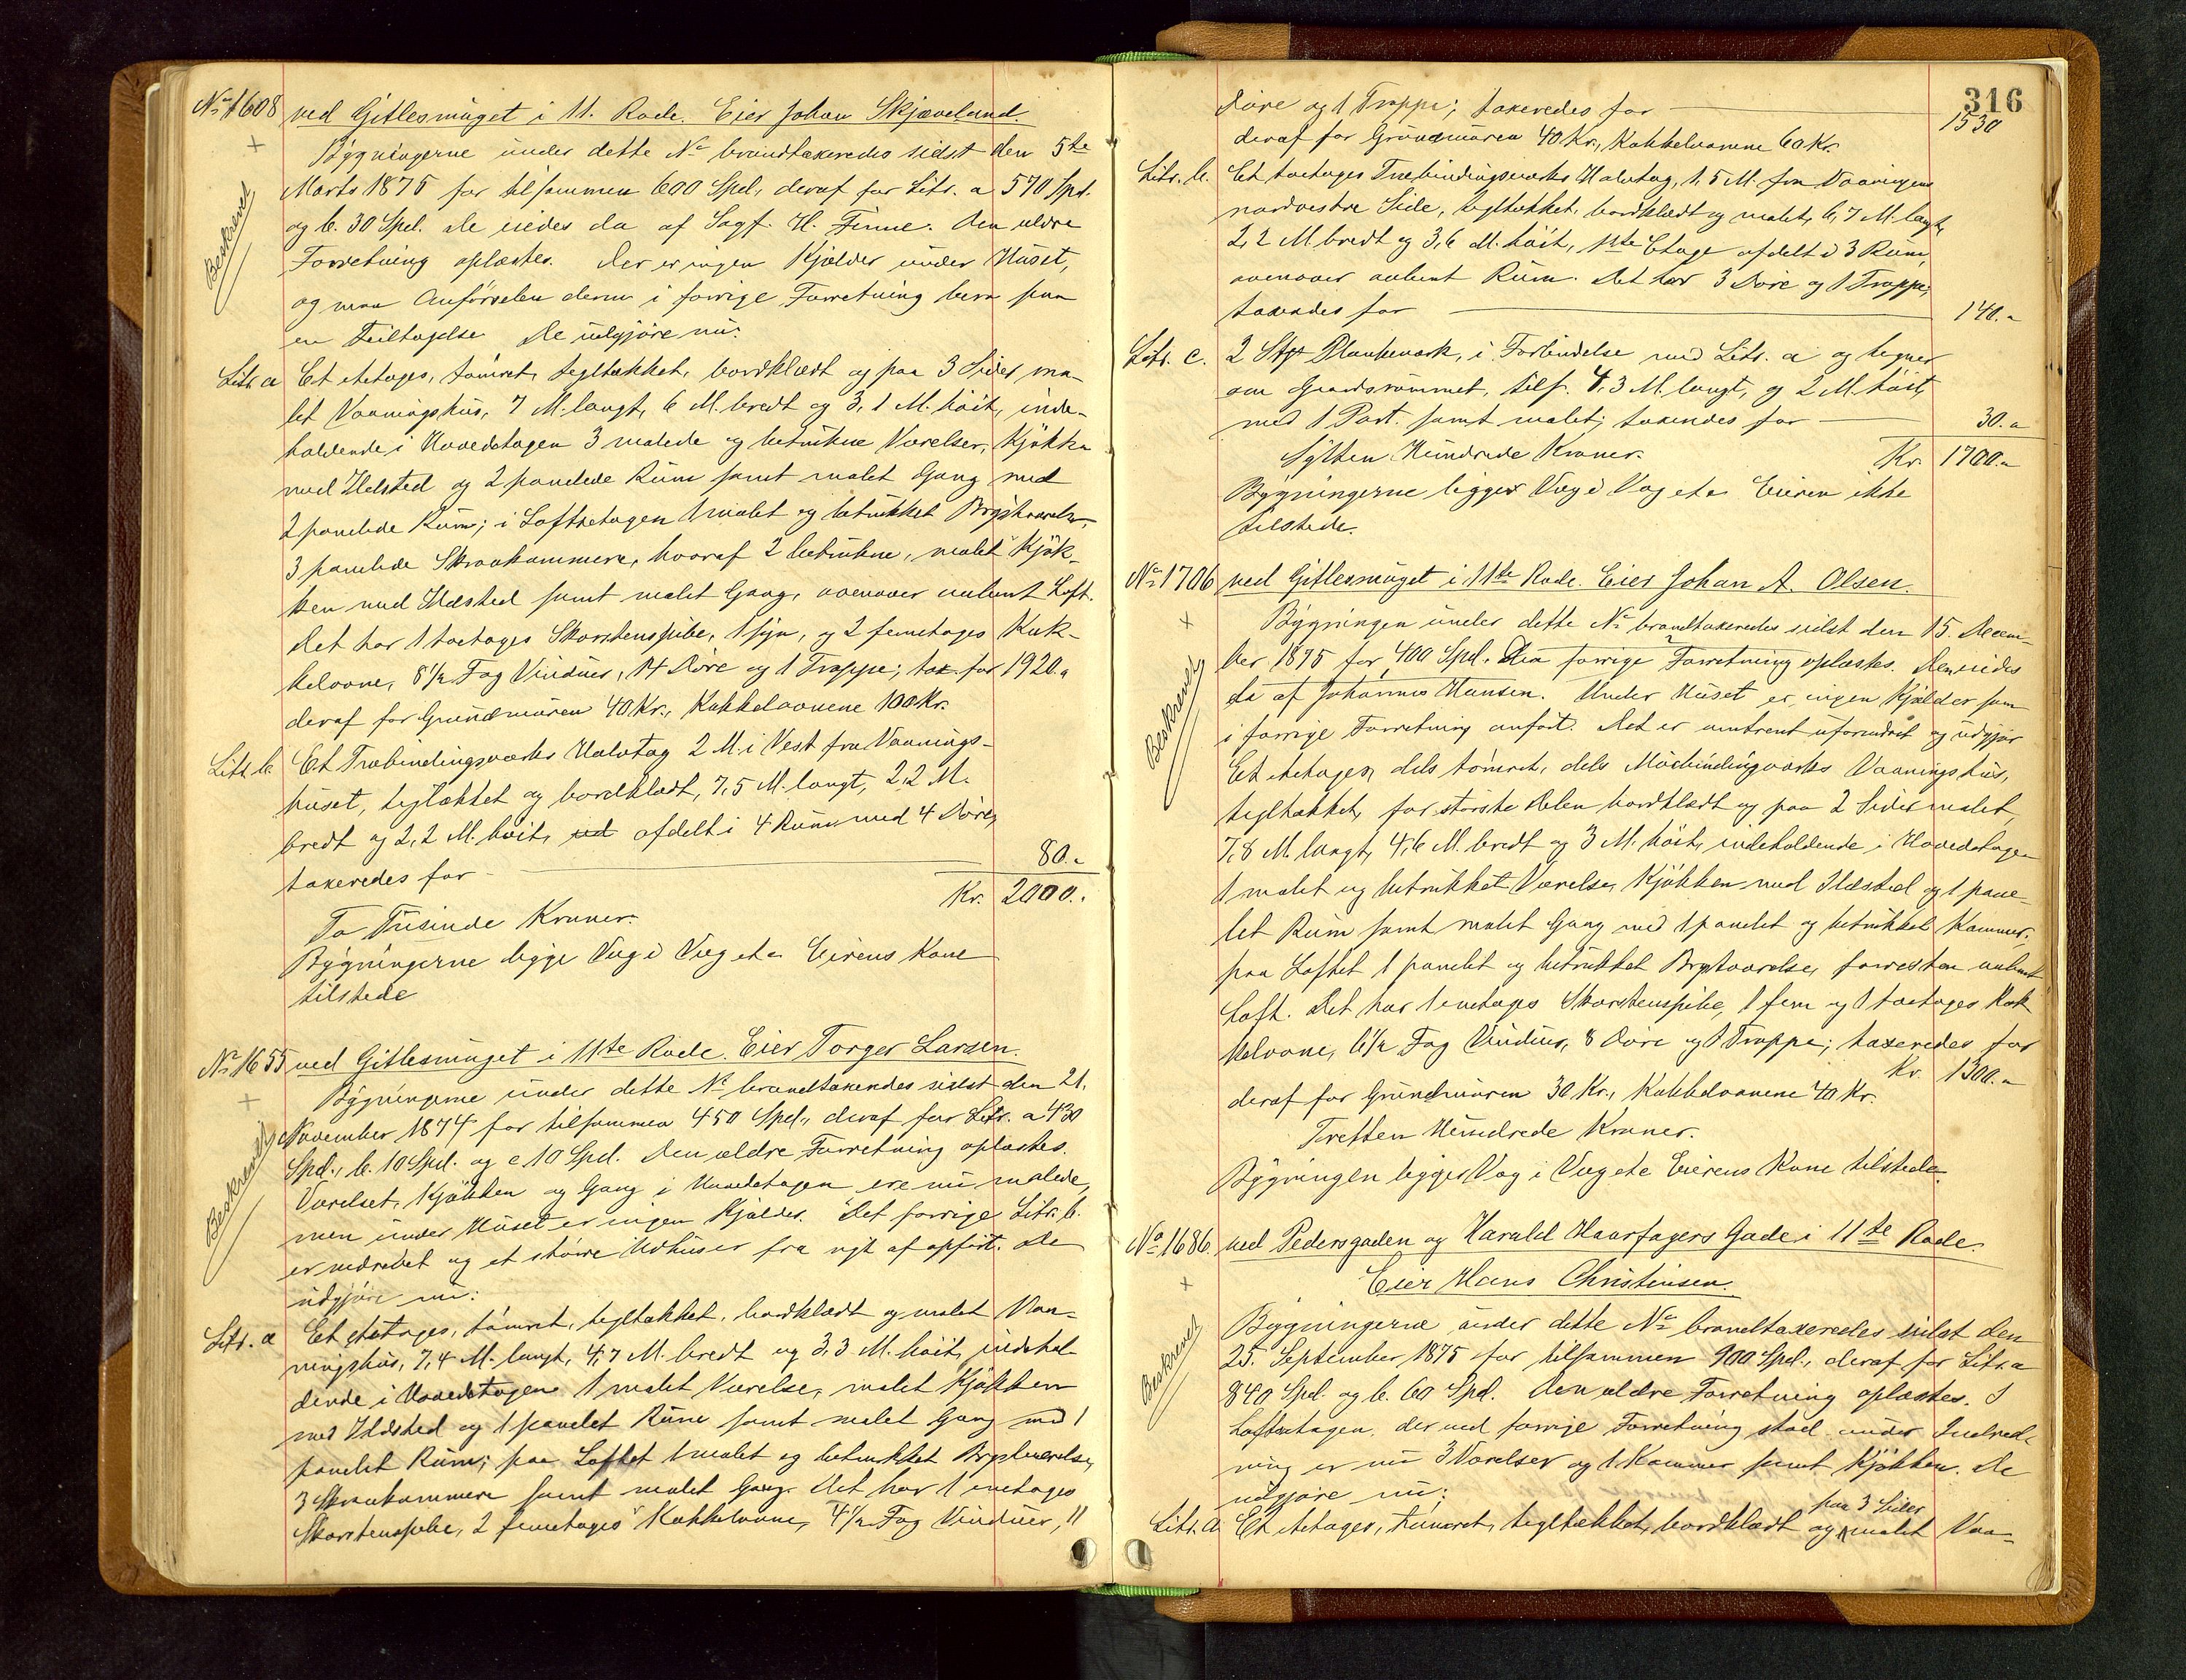 No 1608 ved Gitlesmuget i 11. Rode. Eier Johan Skjæveland.
Bygningerne under dette No brandtaxeredes sidst den 5te
Marts 1875 for tilsammen 600 Spd., deraf for Litr. a 570 Spd.
og b. 30 Spd. De eiedes da af Sagf. H. Finne. Den ældre
Forretning oplæstes. Der er ingen Kjælder under Huset,
og maa Anførselen derom i forrige Forretning bero paa
en Feiltagelse. De udgjøre nu:
Beskrevet
Litr. a Et etetages, tømret, tegltækket, bordklædt og paa 3 Sider ma-
let Vaaningshus, 7 M. langt, 6 M. bredt og 3,1 M. høit, inde-
holdende i Hovedetagen 3 malede og betrukne Værelser, Kjøkken
med Ildsted og 2 panelede Rum samt malet Gang med
2 panelede Rum; i Loftsetagen 1 malet og betrukket Brystværelse,
3 panelede Skraakammere, hvoraf 2 betrukne, malet Kjøk-
ken med Ildsted samt malet Gang, ovenover aabent Loft.
Det har 1 toetages Skorstenspibe, 1 fyr, og 2 femetages Kak-
kelovne, 8 1/2 Fag Vinduer, 14 Døre og 1 Trappe; tax. for 1920.-
deraf for Grundmuren 40 Kr., Kakkelovnene 100 Kr.
Litr. b. Et Træbindingsværks Halvtag 2 M. i Vest fra Vaanings-
huset, tegltækket og bordklædt, 7,5 M. langt, 2,2 M.
bredt og 2,2 M. høit, ud afdelt i 4 Rum med 4 Døre,
taxeredes for 80.-
Kr. 2000.-
To Tusinde Kroner.
Bygningerne ligge Væg i Væg etc. Eierens Kone
tilstede
No 1655 ved Gitlesmuget i 11te Rode. Eier Torger Larsen.
Bygningerne under dette No brandtaxeredes sidst den 21.
November 1874 for tilsammen 450 Spd., deraf for Litr. a 430
Spd., b. 10 Spd. og c 10 Spd. Den ældre Forretning oplæstes.
Værelset, Kjøkken og Gang i Hovedetagen ere nu malede,
men under Huset er ingen Kjælder. Det forrige Litr. b.
er nedrevet og et større Udhus er fra nyt af opført. De
udgjøre nu:
Beskrevet
Litr. a Et etetages, tømret, tegltækket, bordklædt og malet Vaa-
ningshus, 7,4 M. langt, 4,7 M. bredt og 3,3 M. høit, indehol-
dende i Hovedetagen 1 malet Værelse, malet Kjøkken
med Ildsted og 1 panelet Rum samt malet Gang med 1
panelet Rum; paa Loftet 1 malet og betrukket Brystværelse,
3 Skraakammere samt malet Gang. Det har 1 enetages
Skorstenspibe, 2 femetages Kakkelovne, 4 1/2 Fag Vinduer, 11
316
Døre og 1 Trappe; taxeredes for 1530
deraf for Grundmuren 40 Kr., Kakkelovnene 60 Kr.
Litr. b. Et toetages Træbindingsværks Halvtag, 1,5 M. fra Vaaningens
nordvestre Side, tegltækket, bordklædt og malet, 6,7 M. langt,
2,2 M bredt og 3,6 M. høit, 1ste Etage afdelt i 3 Rum,
ovenover aabent Rum. Det har 3 Døre og 1 Trappe,
taxeredes for 140.-
Litr. c. 2 Stkr Plankeværk, i Forbindelse med Litr. a og hegner
om Gaardsrummet, tils. 4,3 M. langt, og 2 M. høit,
med 1 Port samt malet; taxeredes for 30.-
Sytten Hundrede Kroner. Kr. 1700.-
Bygningerne ligger Væg i Væg etc. Eieren ikke
tilstede.
No 1706 ved Gitlesmuget i 11te Rode. Eier Johan A. Olsen.
Bygningen under dette No brandtaxeredes sidst den 15. Decem-
ber 1875 for 400 Spd. Den forrige Forretning oplæstes. Den eiedes
da af Johannes Hansen. Under Huset er ingen Kjælder som
i forrige Forretning anført. Det er omtrent uforandret og udgjør
Beskrevet
Et etetages, dels tømret, dels Murbindingværks Vaaningshus,
tegltækket, for største Delen bordklædt og paa 2 Sider malet,
7,8 M. langt, 4,6 M. bredt og 3 M. høit, indeholdende i Hovedetagen
1 malet og betrukket Værelse, Kjøkken med Ildsted og 1 pane-
let Rum samt malet Gang med 1 panelet og betrukket Kammer,
paa Loftet 1 panelet og betrukket Brystværelse, forresten aabent
Loft. Det har 1 enetages Skorstenspibe, 1 fem og 1 toetages Kak
kelovne, 6 1/2 Fag Vinduer, 8 Døre og 1 Trappe; taxeredes for
Kr. 1300.-
deraf for Grundmuren 30 Kr., Kakkelovnene 40 Kr.
Tretten Hundrede Kroner.
Bygningen ligger Væg i Væg etc. Eierens Kone tilstede.
No 1686. ved Pedersgaden og Harald Haarfagers Gade i 11te Rode.
Eier Hans Christensen.
Bygningerne under dette No brandtaxeredes sidst den
25. September 1875 for tilsammen 900 Spd., deraf for Litr. a
840 Spd. og b. 60 Spd. Den ældre Forretning oplæstes. I
Loftsetagen, der ved forrige Forretning stod under Indred-
ning er nu 3 Værelser og 1 Kammer samt Kjøkken. De
udgjøre nu:
Beskrevet
paa 3 Sider
Litr. a Et etetages, tømret, tegltækket, bordklædt og malet Vaa-